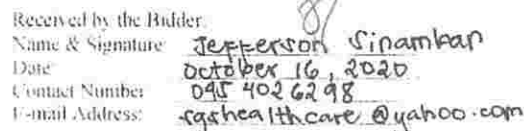 Received by the Bidder:
Name & Signature: Jefferson Sinamban
Date: October 16, 2020
Contact Number 095 402 6298
E-mail Address: sqshealthcare@yahoo.com